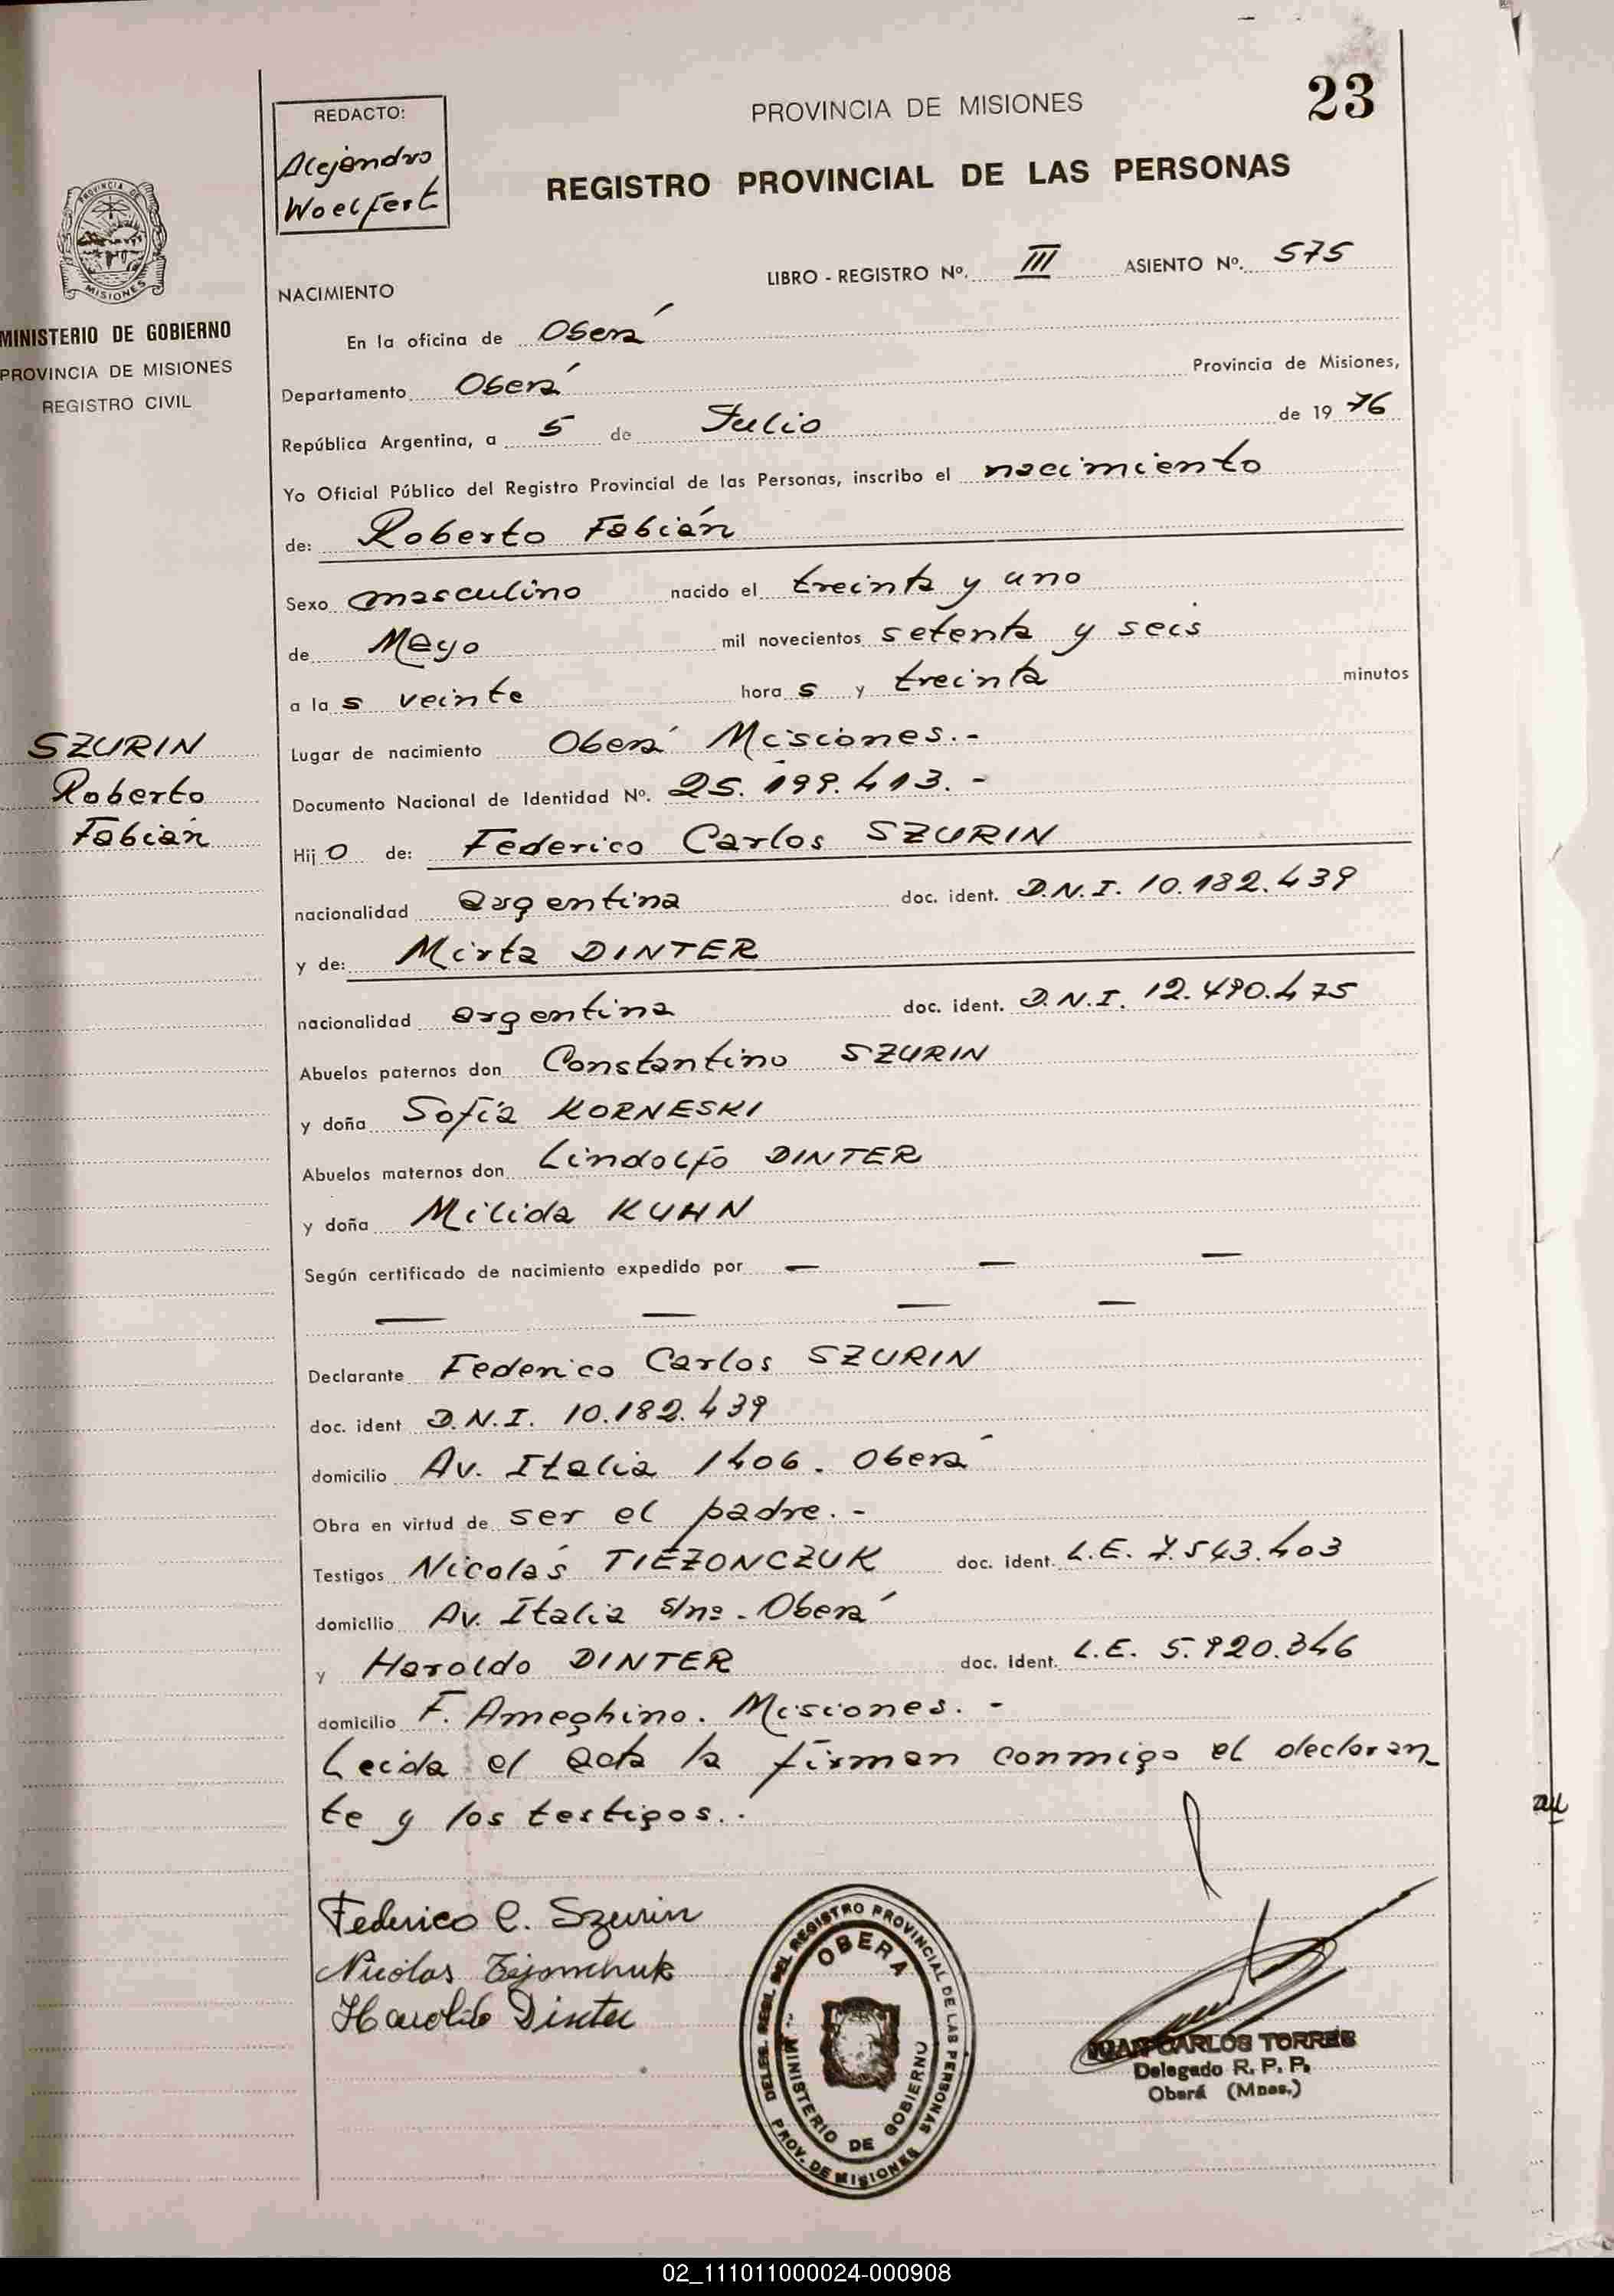 23
PROVINCIA DE MISIONES
REGISTRO PROVINCIAL DE LAS PERSONAS
REDACTO:
Alejandro
Woelfert
PROVINCIA DE
MISIONES
MINISTERIO DE GOBIERNO
PROVINCIA DE MISIONES
REGISTRO CIVIL
LIBRO - REGISTRO Nº. III ASIENTO Nº. 575
NACIMIENTO
En la oficina de Oberá
Departamento Oberá Provincia de Misiones,
República Argentina, a 5 de Julio de 19 76
Yo Oficial Público del Registro Provincial de las Personas, inscribo el nacimiento
de: Roberto Fabián
Sexo masculino nacido el treinta y uno
de Mayo mil novecientos setenta y seis
a la s veinte hora s y treinta minutos
SZURIN
Roberto
Fabián
Lugar de nacimiento Oberá Misiones.-
Documento Nacional de Identidad Nº. 25.199.413.-
Hij o de: Federico Carlos SZURIN
nacionalidad argentina doc. ident. D.N.I. 10.182.439
y de: Mirta DINTER
nacionalidad argentina doc. ident. D.N.I. 12.490.475
Abuelos paternos don Constantino SZURIN
y doña Sofía KORNESKI
Abuelos maternos don Lindolfo DINTER
y doña Milida KUHN
Según certificado de nacimiento expedido por — — —
— — — —
Declarante Federico Carlos SZURIN
doc. ident D.N.I. 10.182.439
domicilio Av. Italia 1406. Oberá
Obra en virtud de ser el padre.-
Testigos Nicolás TIEZONCZUK doc. ident. L.E. 7.543.403
domicilio Av. Italia s/nº - Oberá
y Haroldo DINTER doc. ident. L.E. 5.920.346
domicilio F. Ameghino. Misiones.-
Leida el acta la firman conmigo el declaran
te y los testigos.-
Federico C. Szurin
Nicolas
Haroldo Dinter
DELEG. REGL. DEL REGISTRO PROVINCIAL DE LAS PERSONAS
OBERA
MINISTERIO DE GOBIERNO
PROV. DE MISIONES
JUAN CARLOS TORRES
Delegado R. P. P.
Oberá (Mnes.)
02_111011000024-000908